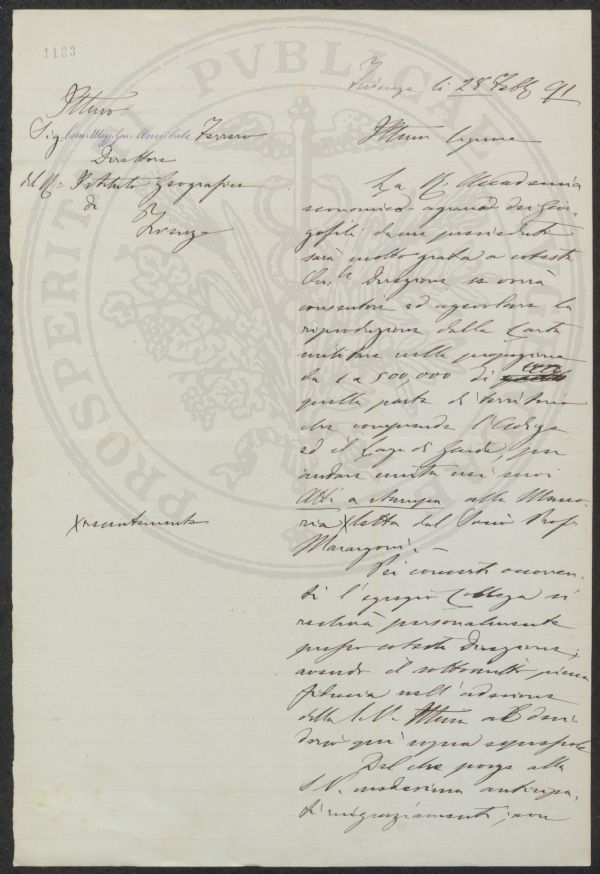 1183
Firenze li 28 Febb 91
Illmo
Sig Com Magg. Gen. Annibale Ferrero
Direttore
del R. Istituto Geografico
di
Firenze
Illmo Signore
La R. Accademia
economico-agraria dei Geor-
gofili da me presieduta
sarà molto grata a cotesta
On. le Direzione se vorrà
consentire ed agevolare la
riproduzione della Carta
militare nella proporzione
da 1 a 500,000 di
quella parte di territorio
che comprende l'Adige
ed il Lago di Garda, per
andare unita nei suoi
Atti a stampa alla Memo-
ria X letta dal Socio Prof.
Marangoni.
X recentemente
Pei concerti occorren-
ti l'egregio Collega si
recherà personalmente
presso cotesta Direzione,
avendo il sottoscritto piena
fiducia nell'adesione
della S. V. Illma al desi-
derio qui sopra espresso
Del che porge alla
S. V. medesima anticipa-
ti ringraziamenti, con
PROSPERITATI PVBLICAE